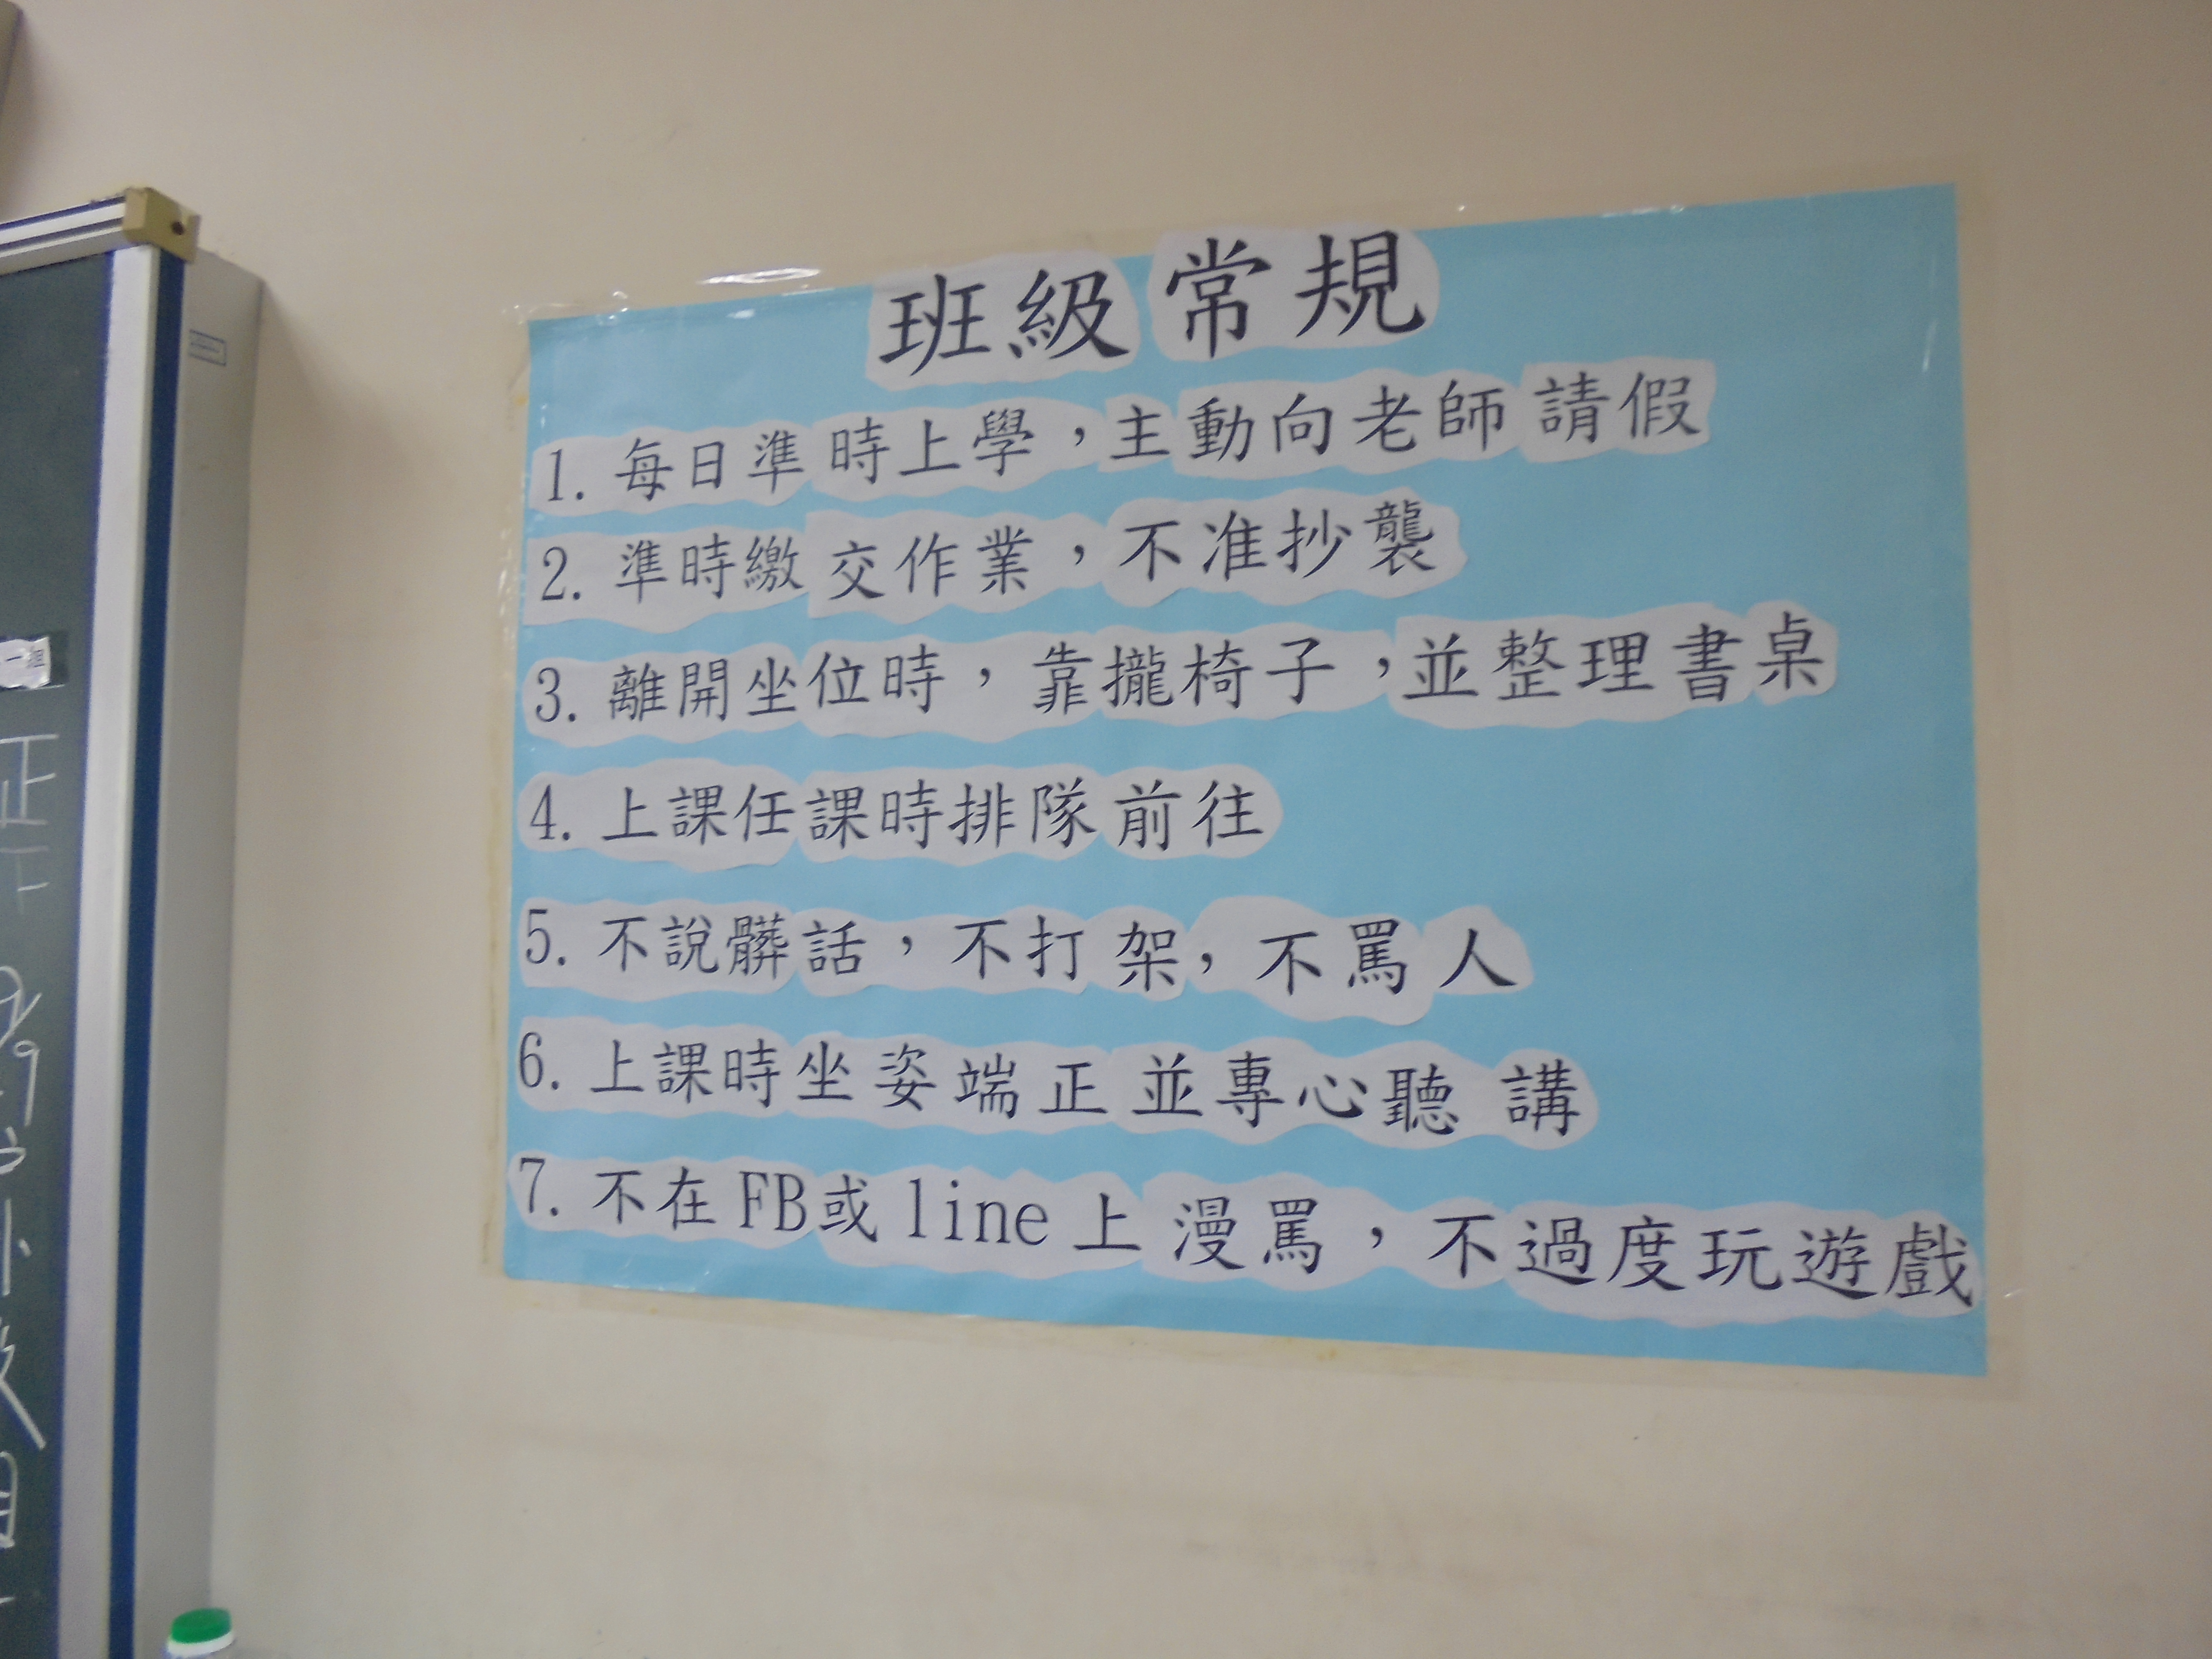 班級常規
1. 每日準時上學，主動向老師請假
2. 準時繳交作業，不准抄襲
3. 離開坐位時，靠攏椅子，並整理書桌
4. 上課任課時排隊前往
5. 不說髒話，不打架，不罵人
6. 上課時坐姿端正並專心聽講
7. 不在FB或line上漫罵，不過度玩遊戲
一組
正